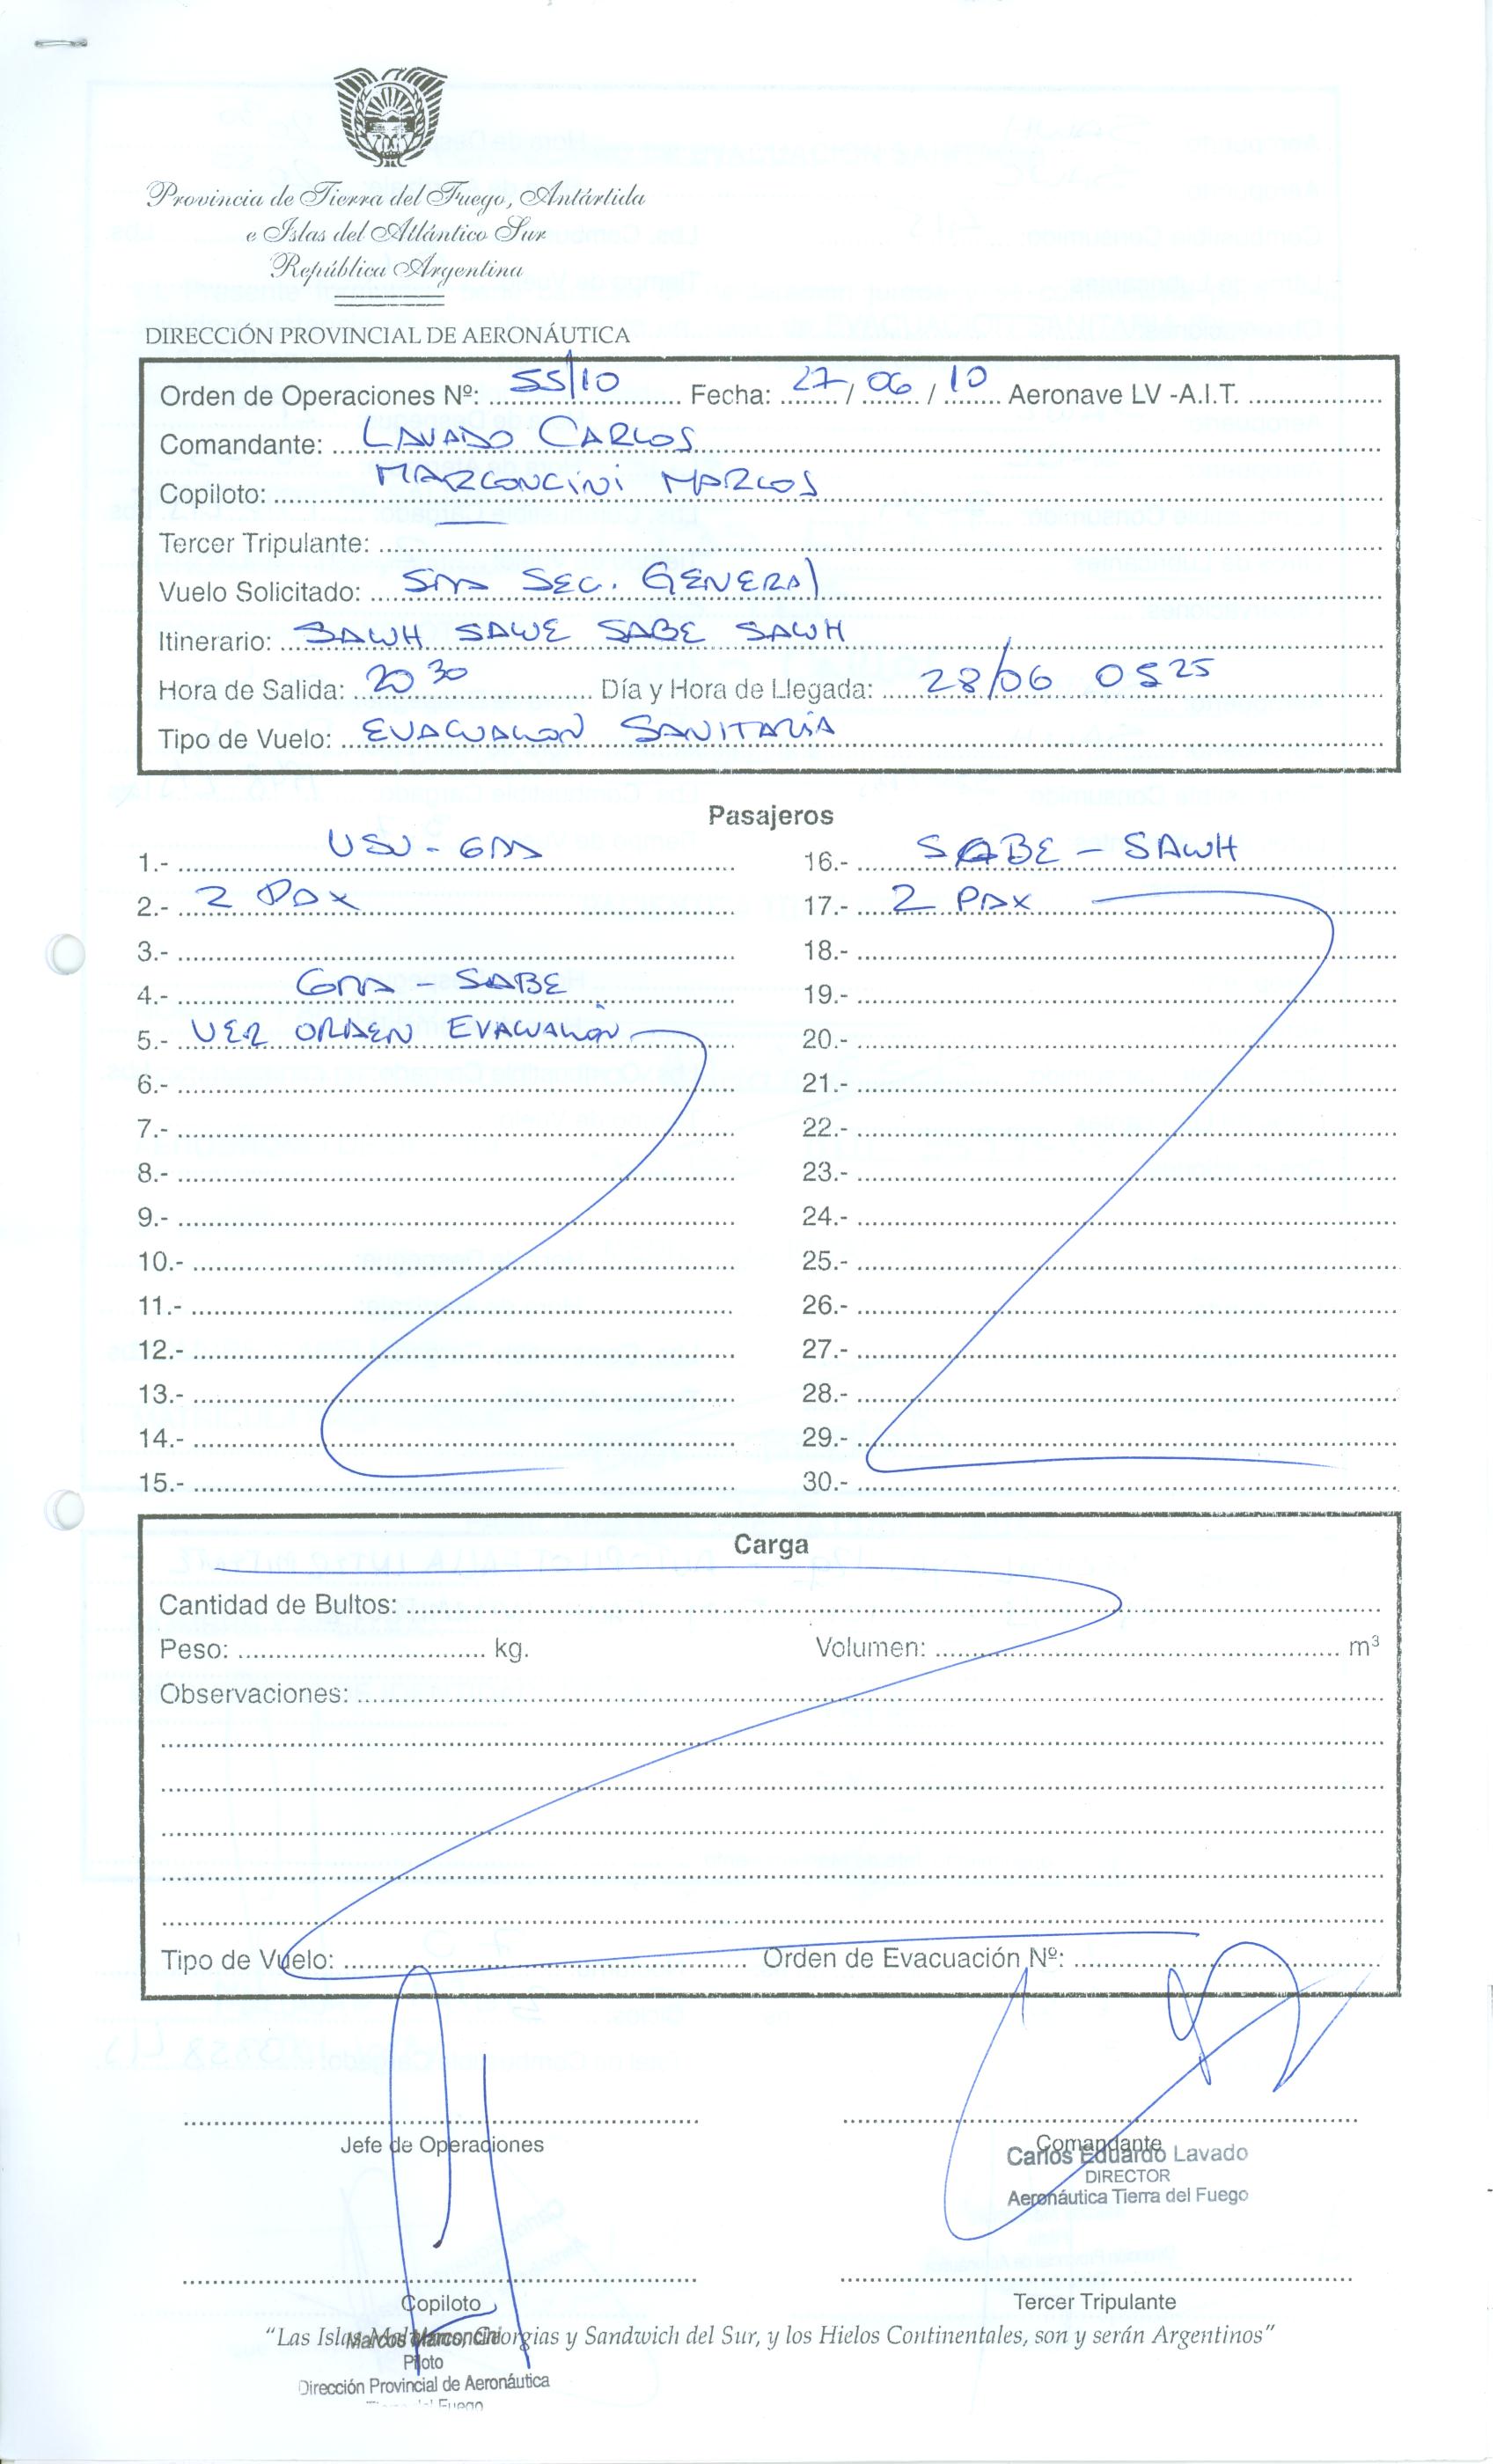 Provincia de Tierra del Fuego, Antártida
e Islas del Atlántico Sur
República Argentina
DIRECCIÓN PROVINCIAL DE AERONÁUTICA
Orden de Operaciones Nº: 55/10 Fecha: 27/06/10 Aeronave LV -A.I.T.
Comandante: LAVADO CARLOS
Copiloto: MARCONCINI MARCOS
Tercer Tripulante:
Vuelo Solicitado: SEC. GENERAL
Itinerario: SAWH SAWE SABE SAWH
Hora de Salida: 20 30 Día y Hora de Llegada: 28/06 05 25
Tipo de Vuelo: EVACUACION SANITARIA
Pasajeros
1.- USU - GRA
2.- 2 PAX
3.-
4.- GRA - SABE
5.- VER ORDEN EVACUACIÓN
6.-
7.-
8.-
9.-
10.-
11.-
12.-
13.-
14.-
15.-
16.- SABE - SAWH
17.- 2 PAX
18.-
19.-
20.-
21.-
22.-
23.-
24.-
25.-
26.-
27.-
28.-
29.-
30.-
Carga
Cantidad de Bultos:
Peso: kg. Volumen: m³
Observaciones:
Tipo de Vuelo: Orden de Evacuación Nº:
Jefe de Operaciones
Comandante
Carlos Eduardo Lavado
DIRECTOR
Aeronáutica Tierra del Fuego
Copiloto
Tercer Tripulante
"Las Islas Malvinas, Georgias y Sandwich del Sur, y los Hielos Continentales, son y serán Argentinos"
Marcos Marconcini
Piloto
Dirección Provincial de Aeronáutica
Tierra del Fuego